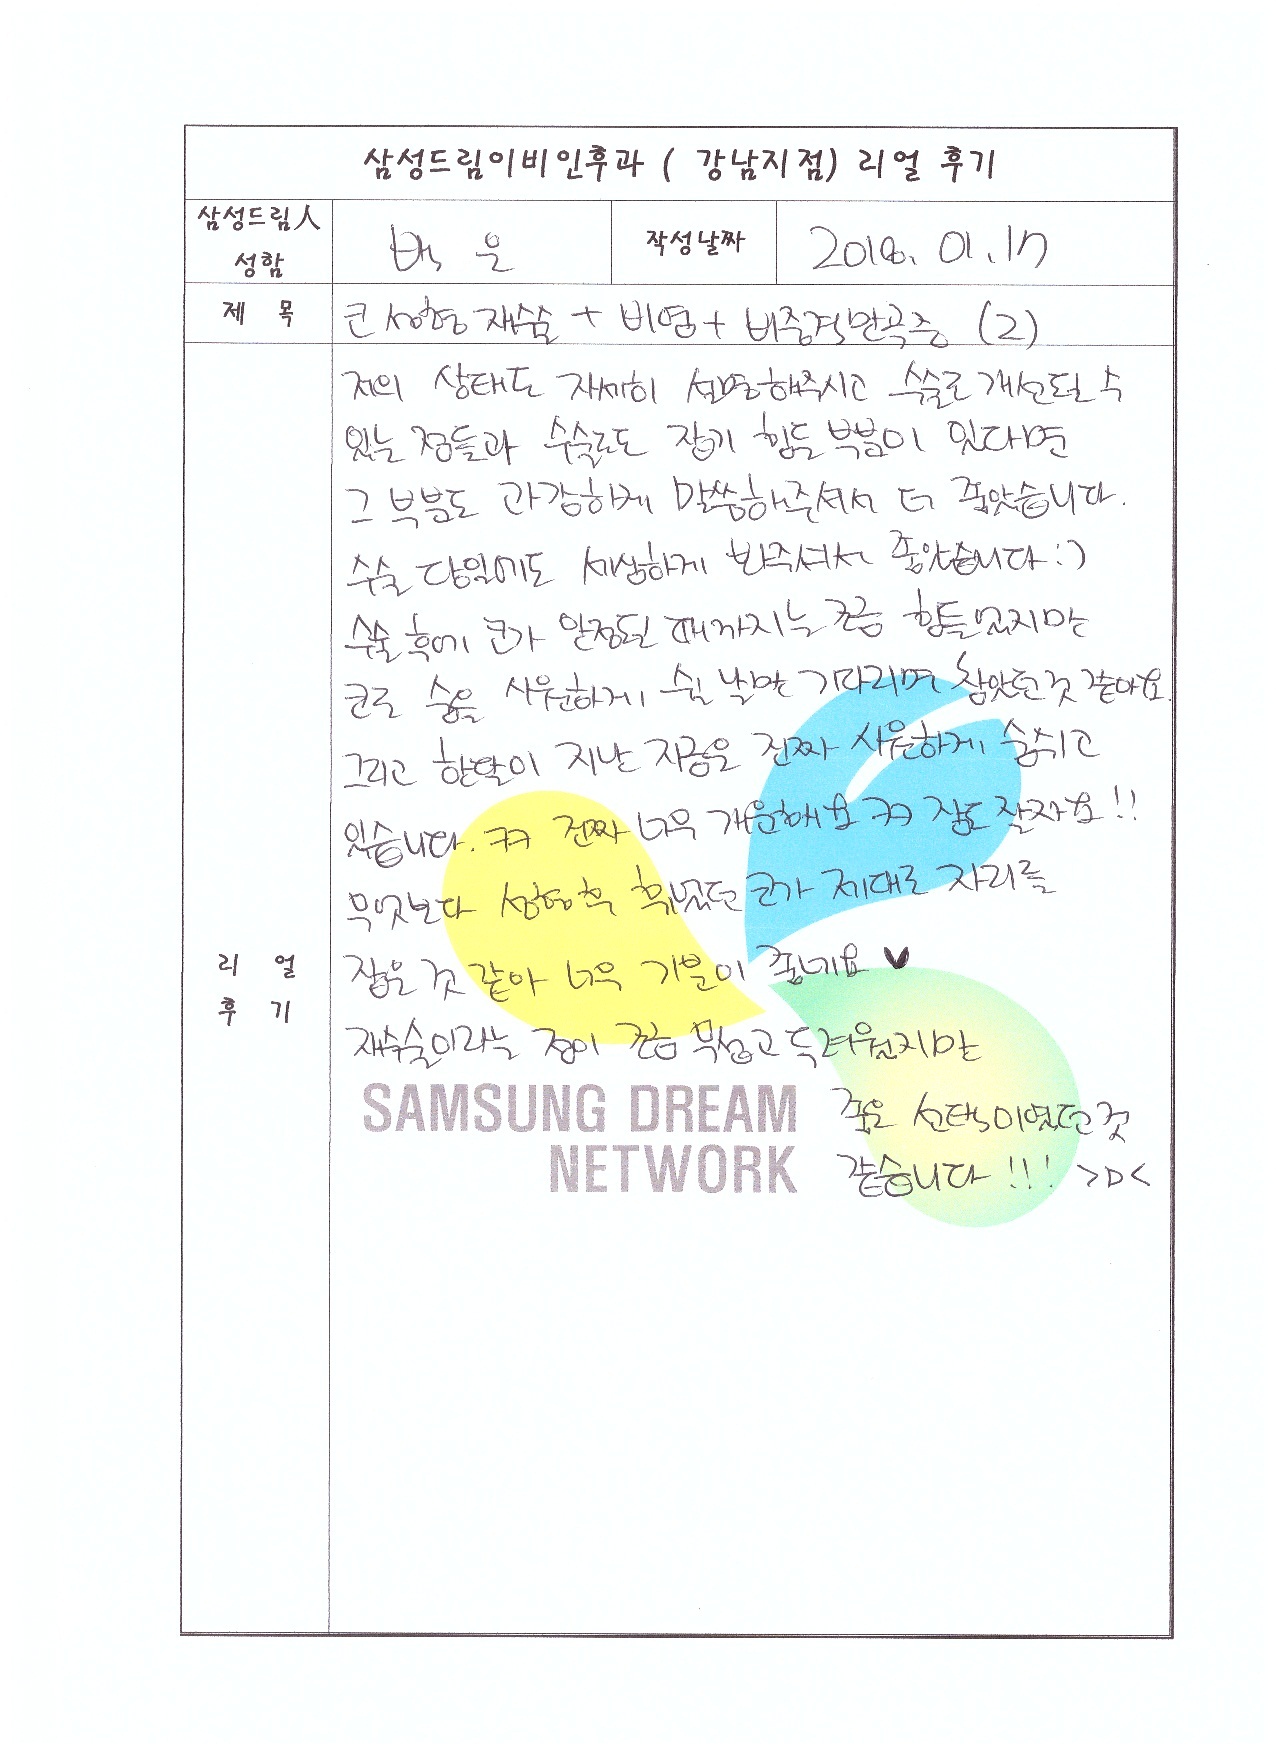 삼성드림이비인후과 ( 강남지점) 리얼 후기
삼성드림人 성함
백 은
작성날짜
2018. 01. 17
제 목
코 성형 재수술 + 비염 + 비중격만곡증 (2)
리 얼 후 기
저의 상태도 자세히 설명해주시고 수술로 개선될 수
있는 점들과 수술로도 잡기 힘든 부분이 있다면
그 부분도 과감하게 말씀해주셔서 더 좋았습니다.
수술 당일에도 세심하게 봐주셔서 좋았습니다 :)
수술 후에 코가 안정될 때까지는 조금 힘들었지만
코로 숨을 시원하게 쉴 날만 기다리며 참았던 것 같아요.
그리고 한달이 지난 지금은 진짜 시원하게 숨쉬고
있습니다. ㅋㅋ 진짜 너무 개운해요 ㅋㅋ 잠도 잘자요!!
무엇보다 성형 후 휘었던 코가 제대로 자리를
잡은 것 같아 너무 기분이 좋네요 ♥
재수술이라는 점이 조금 무섭고 두려웠지만
좋은 선택이였던 것
같습니다 !!! >D<
SAMSUNG DREAM
NETWORK